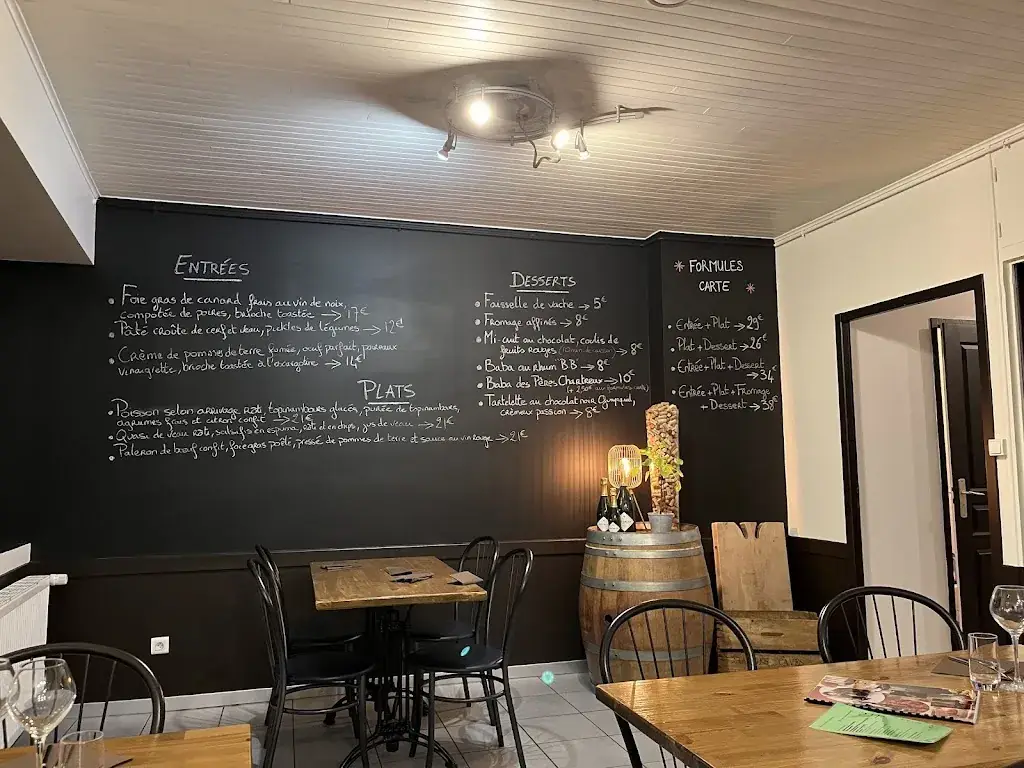 ENTRÉES
• Foie gras de canard frais au vin de noix,
compotée de poires, brioche toastée → 17€
• Pâté croûte de cerf et veau, pickles de légumes → 12€
• Crème de pommes de terre fumée, œuf parfait, poireaux
vinaigrette, brioche toastée à l'escargotine → 14€
PLATS
• Poisson selon arrivage rôti, topinambours glacés, purée de topinambours,
agrumes frais et citron confit → 21€
• Quasi de veau rôti, salsifis en espuma, rôti et en chips, jus de veau → 21€
• Paleron de bœuf confit, foie gras poêlé, pressé de pommes de terre et sauce au vin rouge → 21€
DESSERTS
• Faisselle de vache → 5€
• Fromage affinés → 8€
• Mi-cuit au chocolat, coulis de
fruits rouges → 8€
• Baba au rhum B.B → 8€
• Baba des Pères Chartreux → 10€
• Tartelette au chocolat noir,
crémeux passion → 8€
* FORMULES
CARTE *
• Entrée + Plat → 29€
• Plat + Dessert → 26€
• Entrée + Plat + Dessert
→ 34€
• Entrée + Plat + Fromage
+ Dessert → 38€